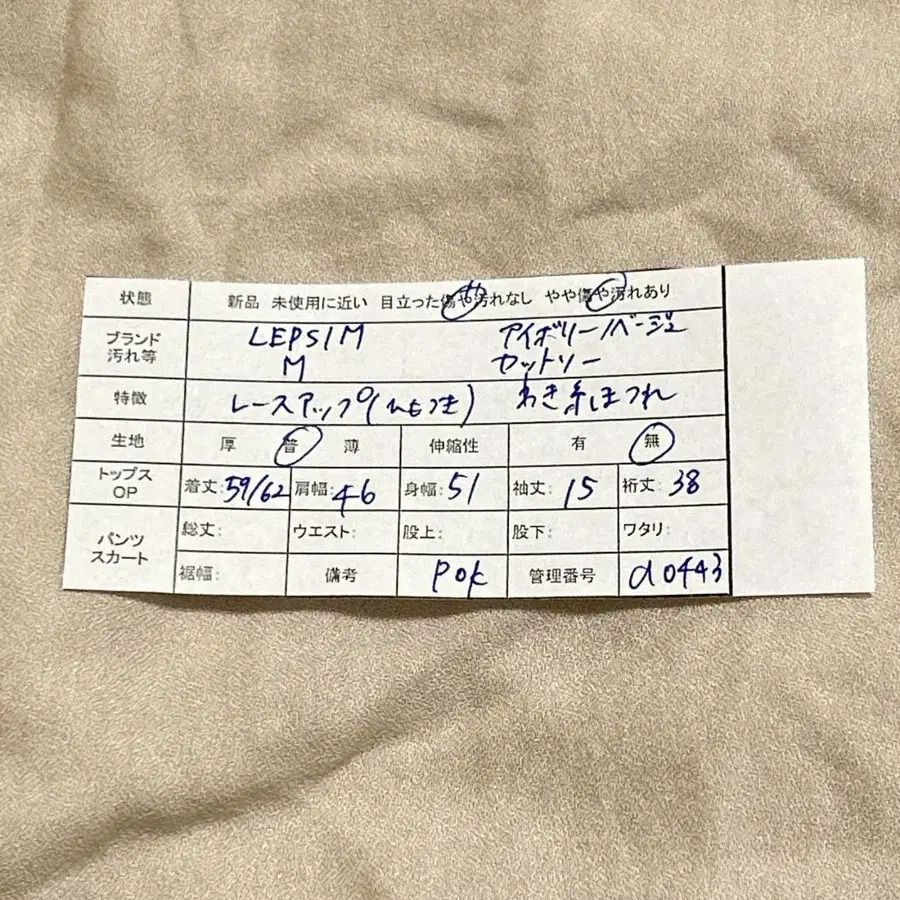 状態 新品 未使用に近い 目立った傷や汚れなし やや傷や汚れあり
ブランド 汚れ等 LEPSIM アイボリー/ベージュ
M カットソー
特徴 レースアップ(ひもつき) わき糸ほつれ
生地 厚 普 薄 伸縮性 有 無
トップス OP 着丈:59/62 肩幅:46 身幅:51 袖丈:15 裄丈:38
パンツ スカート 総丈: ウエスト: 股上: 股下: ワタリ:
裾幅: 備考 pok 管理番号 a0443